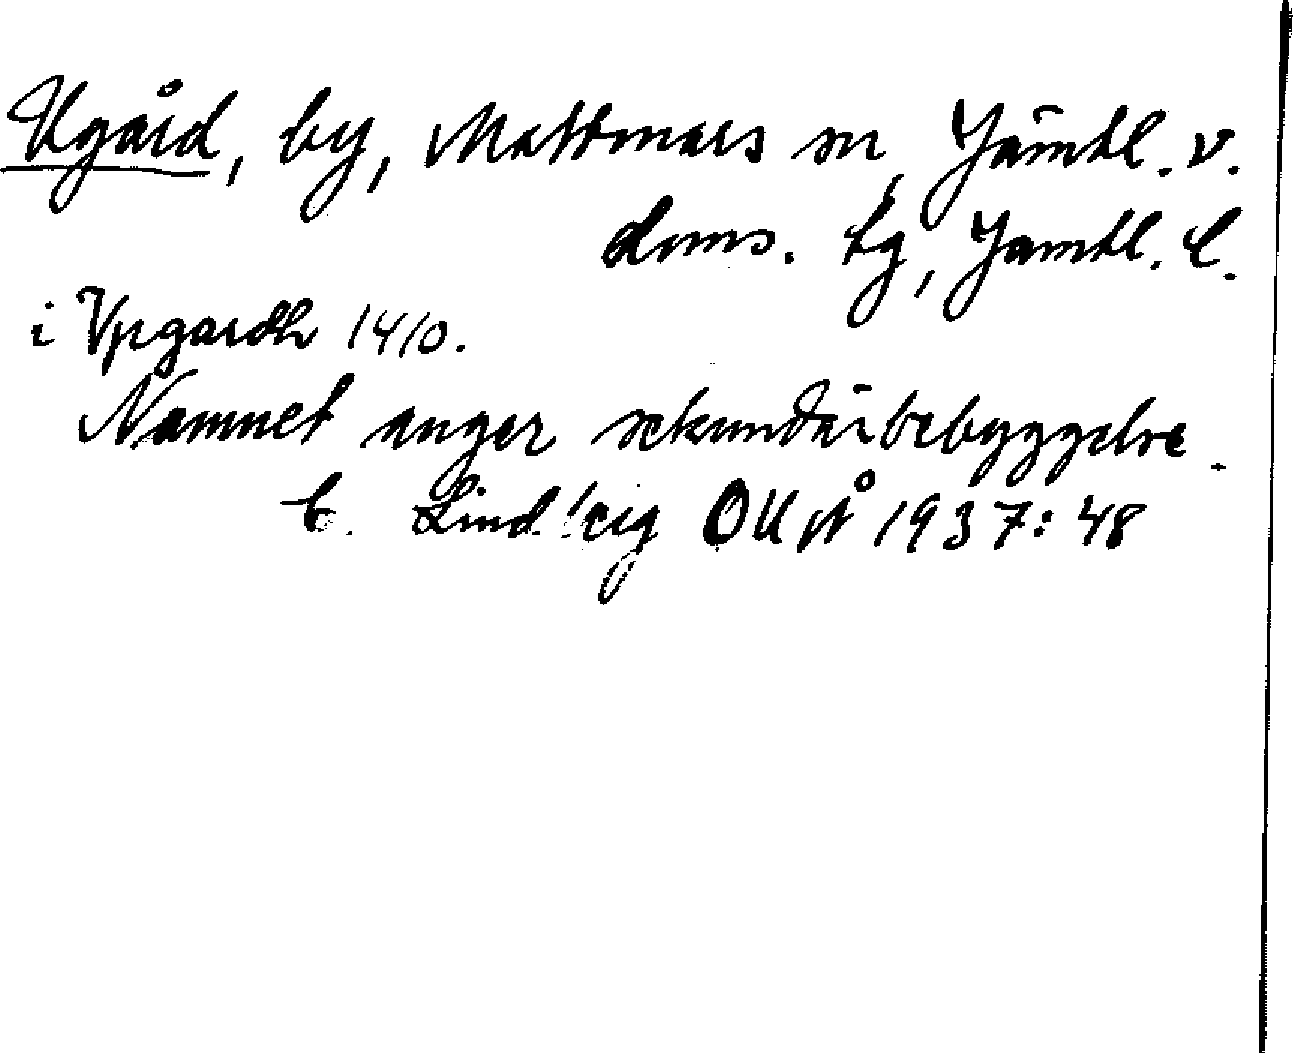 Ugård, by, Mattmars sn, Jämtl. v.
doms. tg, Jämtl. l.
i Vpgardh 1410.
Namnet anger sekundärbebyggelse.
E. Lindberg OUÅ 1937:48